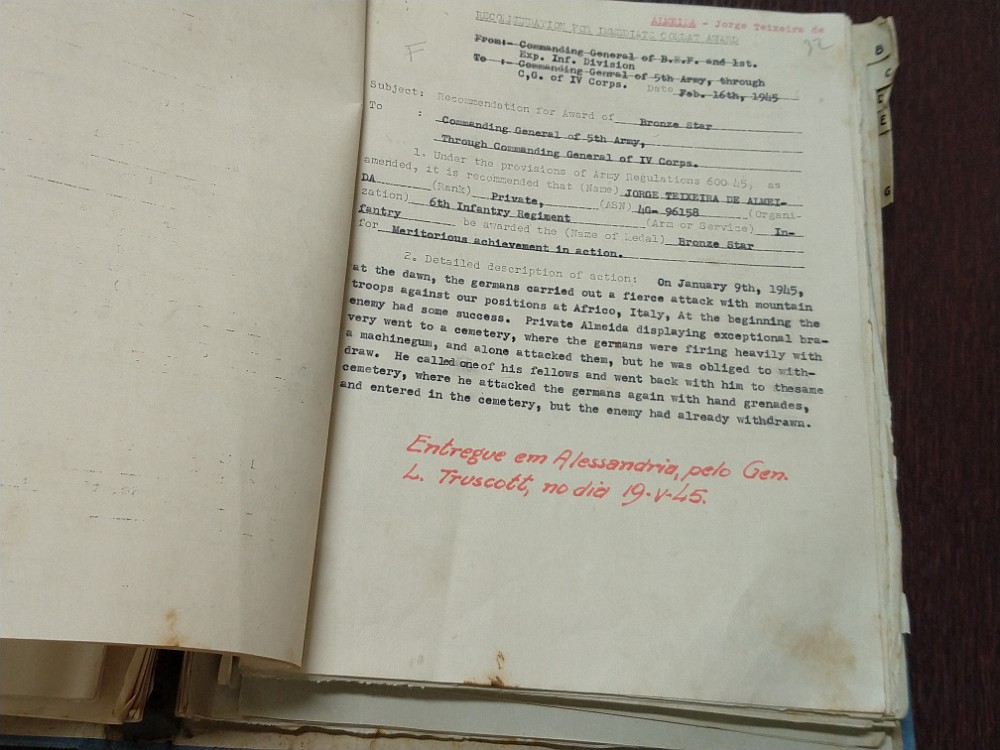 ALMEIDA - Jorge Teixeira de
RECOMMENDATION FOR IMMEDIATE COMBAT AWARD
32
F
From:- Commanding General of B.E.F. and 1st.
Exp. Inf. Division
To :- Commanding Genral of 5th Army, through
C,G. of IV Corps. Date Feb. 16th, 1945
Subject: Recommendation for Award of Bronze Star
To : Commanding General of 5th Army,
Through Commanding General of IV Corps.
1. Under the provisions of Army Regulations 600-45, as
amended, it is recommended that (Name) JORGE TEIXEIRA DE ALMEI-
DA (Rank) Private, (ASN) 4G- 96158 (Organi-
zation) 6th Infantry Regiment (Arm or Service) In-
fantry be awarded the (Name of Medal) Bronze Star
for Meritorious achievement in action.
2. Detailed description of action: On January 9th, 1945,
at the dawn, the germans carried out a fierce attack with mountain
troops against our positions at Africo, Italy, At the beginning the
enemy had some success. Private Almeida displaying exceptional bra-
very went to a cemetery, where the germans were firing heavily with
a machinegum, and alone attacked them, but he was obliged to with-
draw. He called one of his fellows and went back with him to thesame
cemetery, where he attacked the germans again with hand grenades,
and entered in the cemetery, but the enemy had already withdrawn.
Entregue em Alessandria, pelo Gen.
L. Truscott, no dia 19-V-45.
B
C
E
E
G